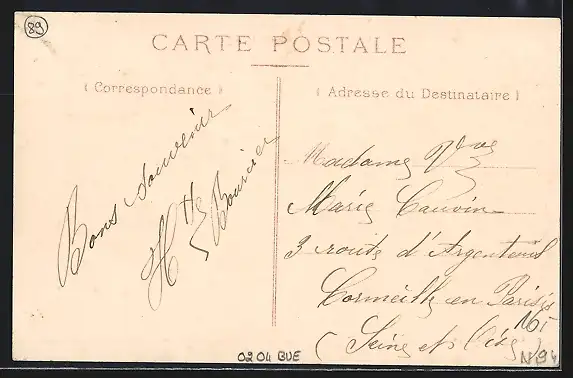 89
CARTE POSTALE
(Correspondance)
(Adresse du Destinataire)
Bons souvenir
Madame Vve
Marie Cauvin
3 route d'Argenteuil
Cormeille en Parisis
(Seine et Oise)
0204 BUE